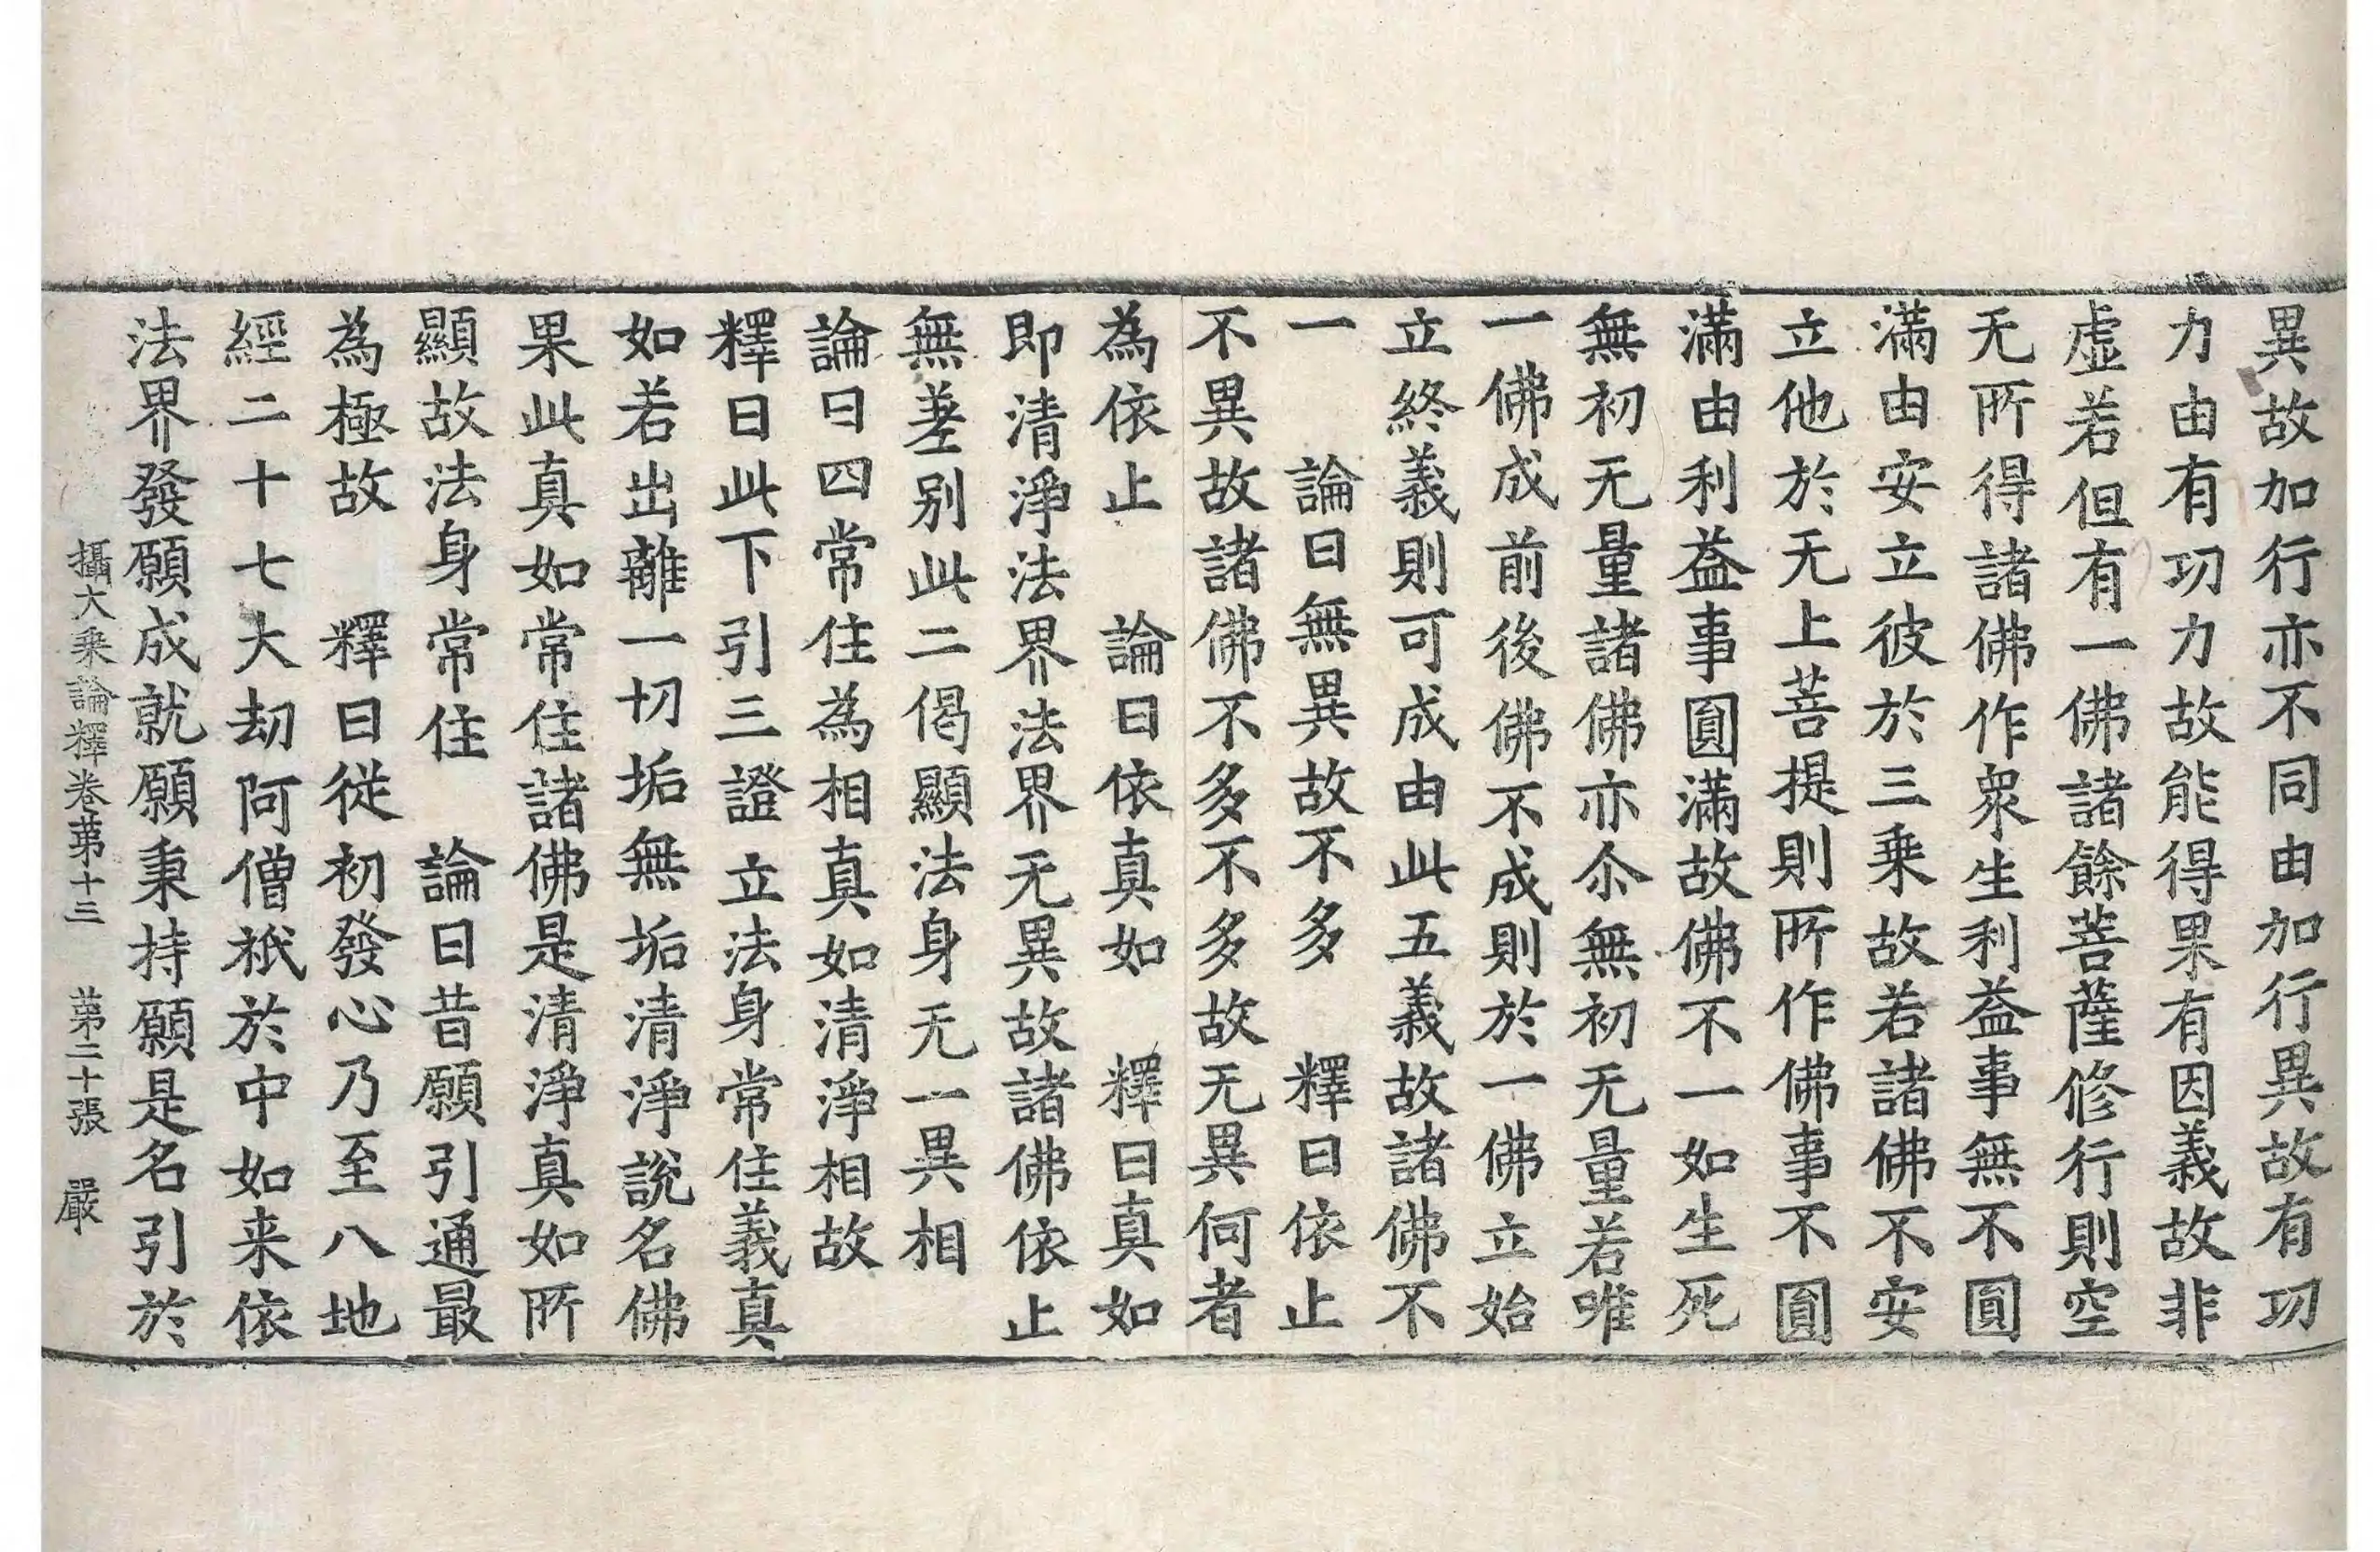 異故加行亦不同由加行異故有功
力由有功力故能得果有因義故非
虛若但有一佛諸餘菩薩修行則空
无所得諸佛作衆生利益事無不圓
滿由安立彼於三乗故若諸佛不安
立他於无上菩提則所作佛事不圓
滿由利益事圓滿故佛不一如生死
無初无量諸佛亦尒無初无量若唯
一佛成前後佛不成則於一佛立始
立終義則可成由此五義故諸佛不
一　論曰無異故不多　釋曰依止
不異故諸佛不多不多故无異何者
為依止　論曰依真如　釋曰真如
即清淨法界法界无異故諸佛依止
無差别此二偈顯法身无一異相
論曰四常住為相真如清淨相故
釋曰此下引三證立法身常住義真
如若出離一切垢無垢清淨說名佛
果此真如常住諸佛是清淨真如所
顯故法身常住　論曰昔願引通最
為極故　釋曰從初發心乃至八地
經二十七大劫阿僧祇於中如来依
法界發願成就願秉持願是名引於
攝大乗論釋卷苐十三　苐二十張　嚴